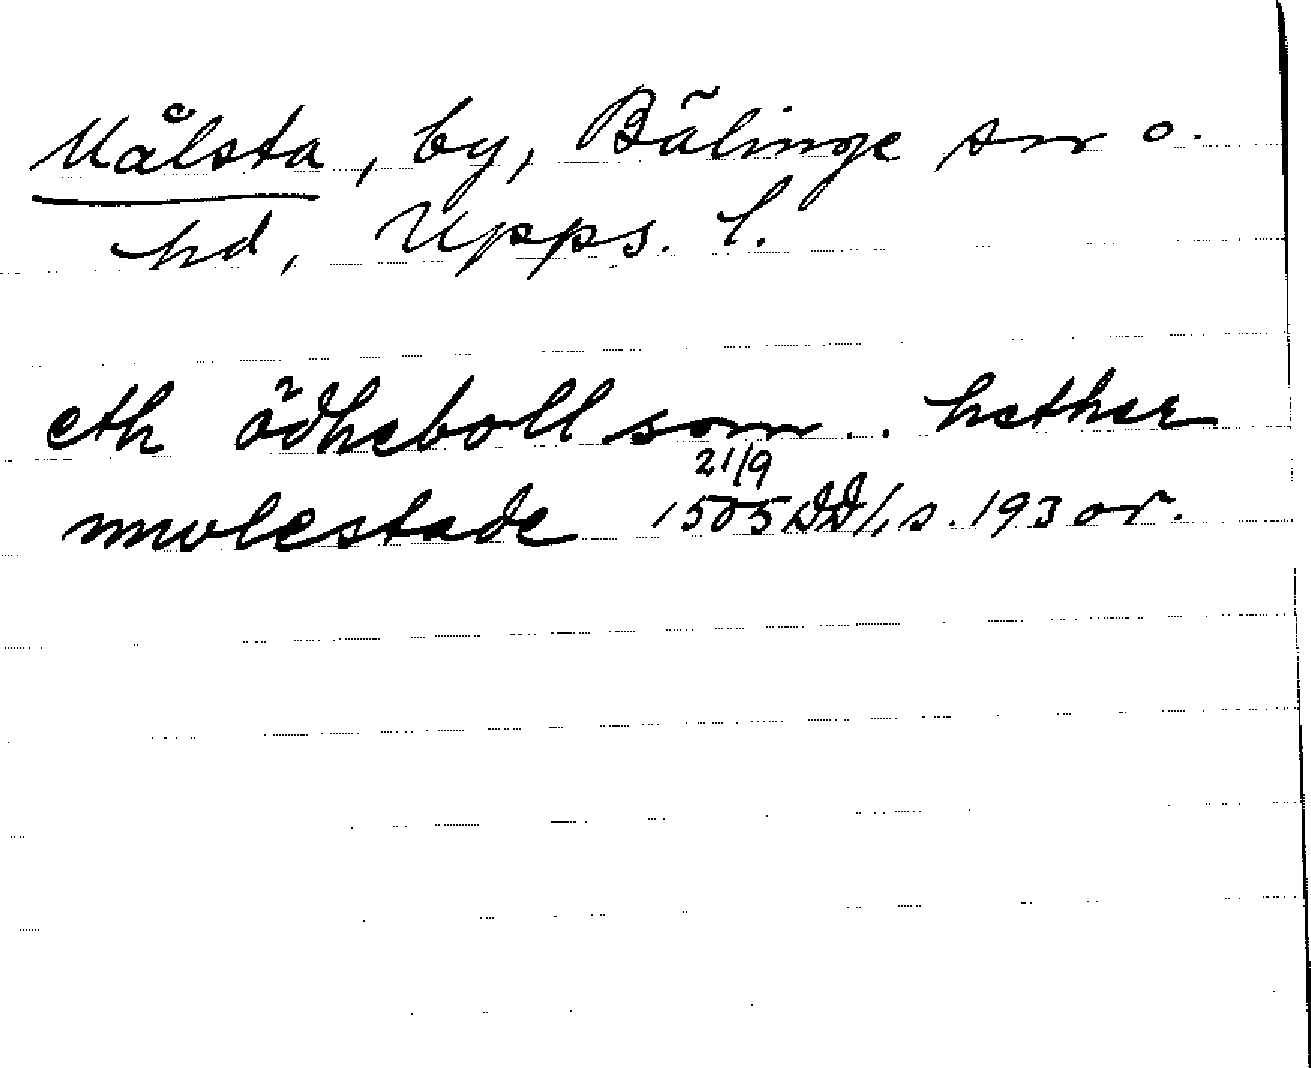 Målsta, by, Bälinge sn o.
hd, Upps. l.
eth ödheboll som .. hether
molestade 21/9 1505 DD/1, s. 193 or.